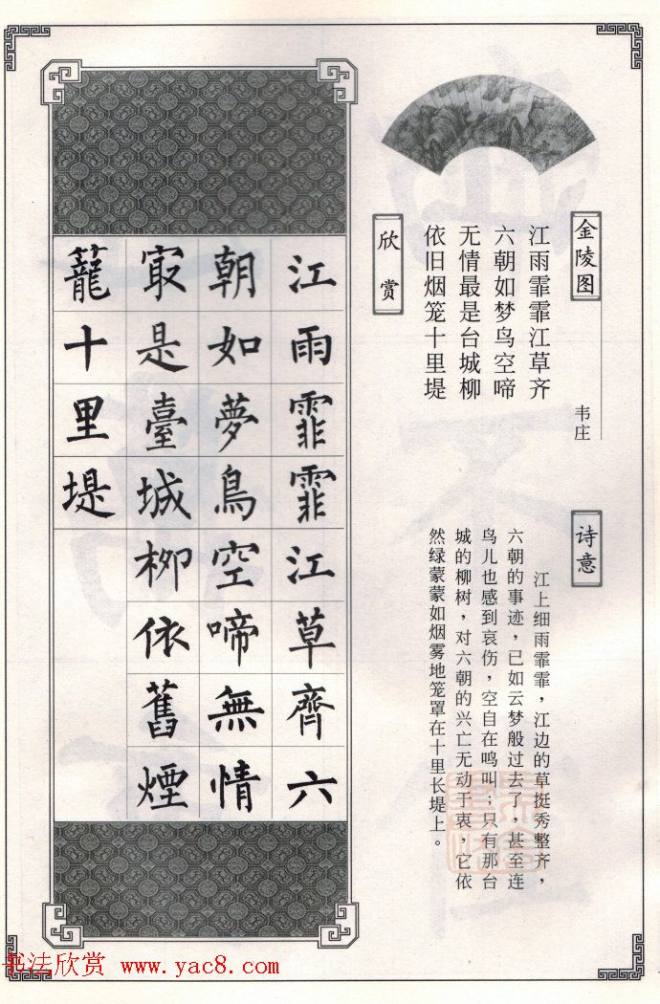 金陵图
韦庄
欣赏
江雨霏霏江草齐
六朝如梦鸟空啼
无情最是台城柳
依旧烟笼十里堤
诗意
江上细雨霏霏，江边的草挺秀整齐，
六朝的事迹，已如云梦般过去了，甚至连
鸟儿也感到哀伤，空自在鸣叫；只有那台
城的柳树，对六朝的兴亡无动于衷，它依
然绿蒙蒙如烟雾地笼罩在十里长堤上。
江雨霏霏江草齊六
朝如夢鳥空啼無情
㝡是臺城柳依舊煙
籠十里堤
书法欣赏 www.yac8.com